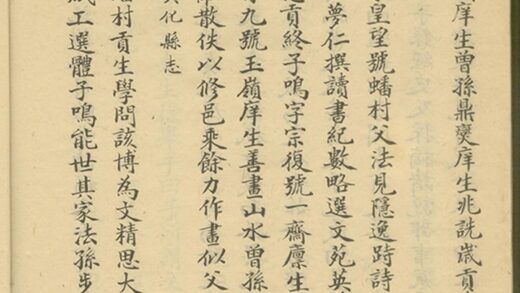 庠生曾孫鼎奭庠生兆詵歲貢
皇望號蟠村父法見隱逸時詩
夢仁撰讀書紀數略選文苑英
歲貢終子鳴字宗復號一齋廩生
九號玉嶺庠生善畫山水曾孫
散佚以修邑乘餘力作畫似父
化縣志
蟠村貢生學問該博為文精思大
工選體子鳴能世其家法孫步